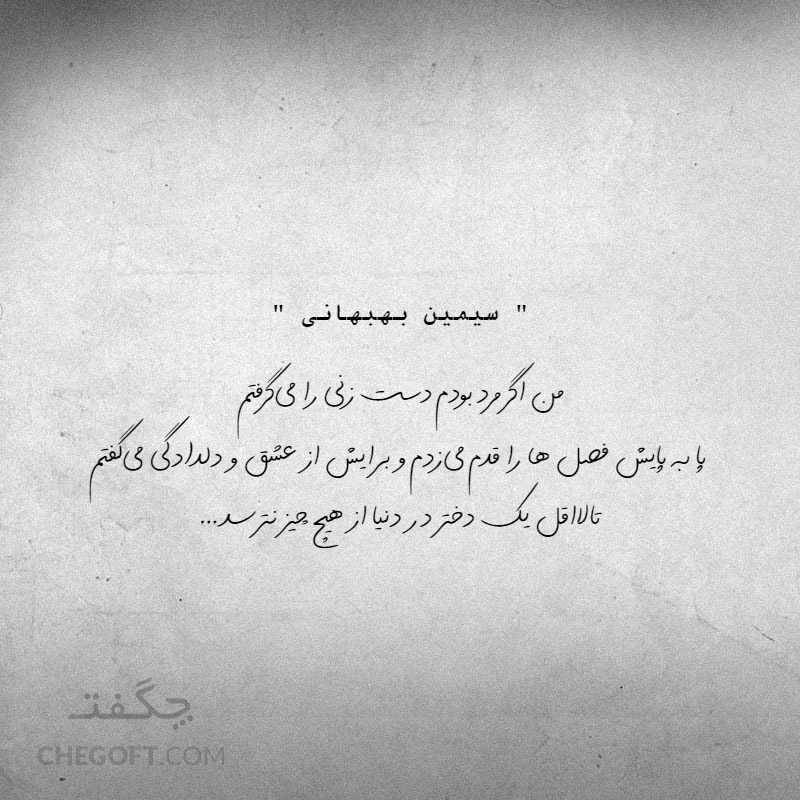 " سیمین بهبهانی "
من اگر مرد بودم دست زنی را می‌گرفتم
پا به پایش فصل ها را قدم می‌زدم و برایش از عشق و دلدادگی می‌گفتم
تالااقل یک دختر در دنیا از هیچ چیز نترسد...
چگفت
CHEGOFT.COM